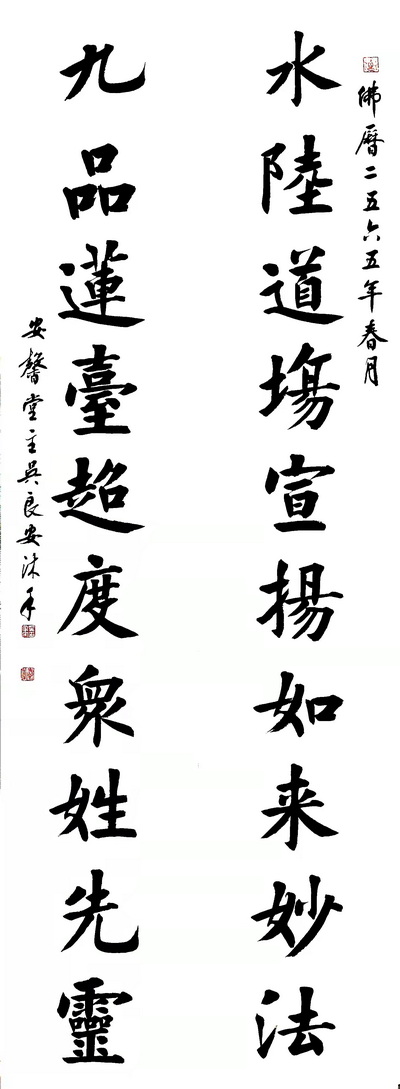 佛曆二五六五年春月
水陸道場宣揚如来妙法
九品蓮臺超度衆姓先靈
安馨堂主吳良安沐手